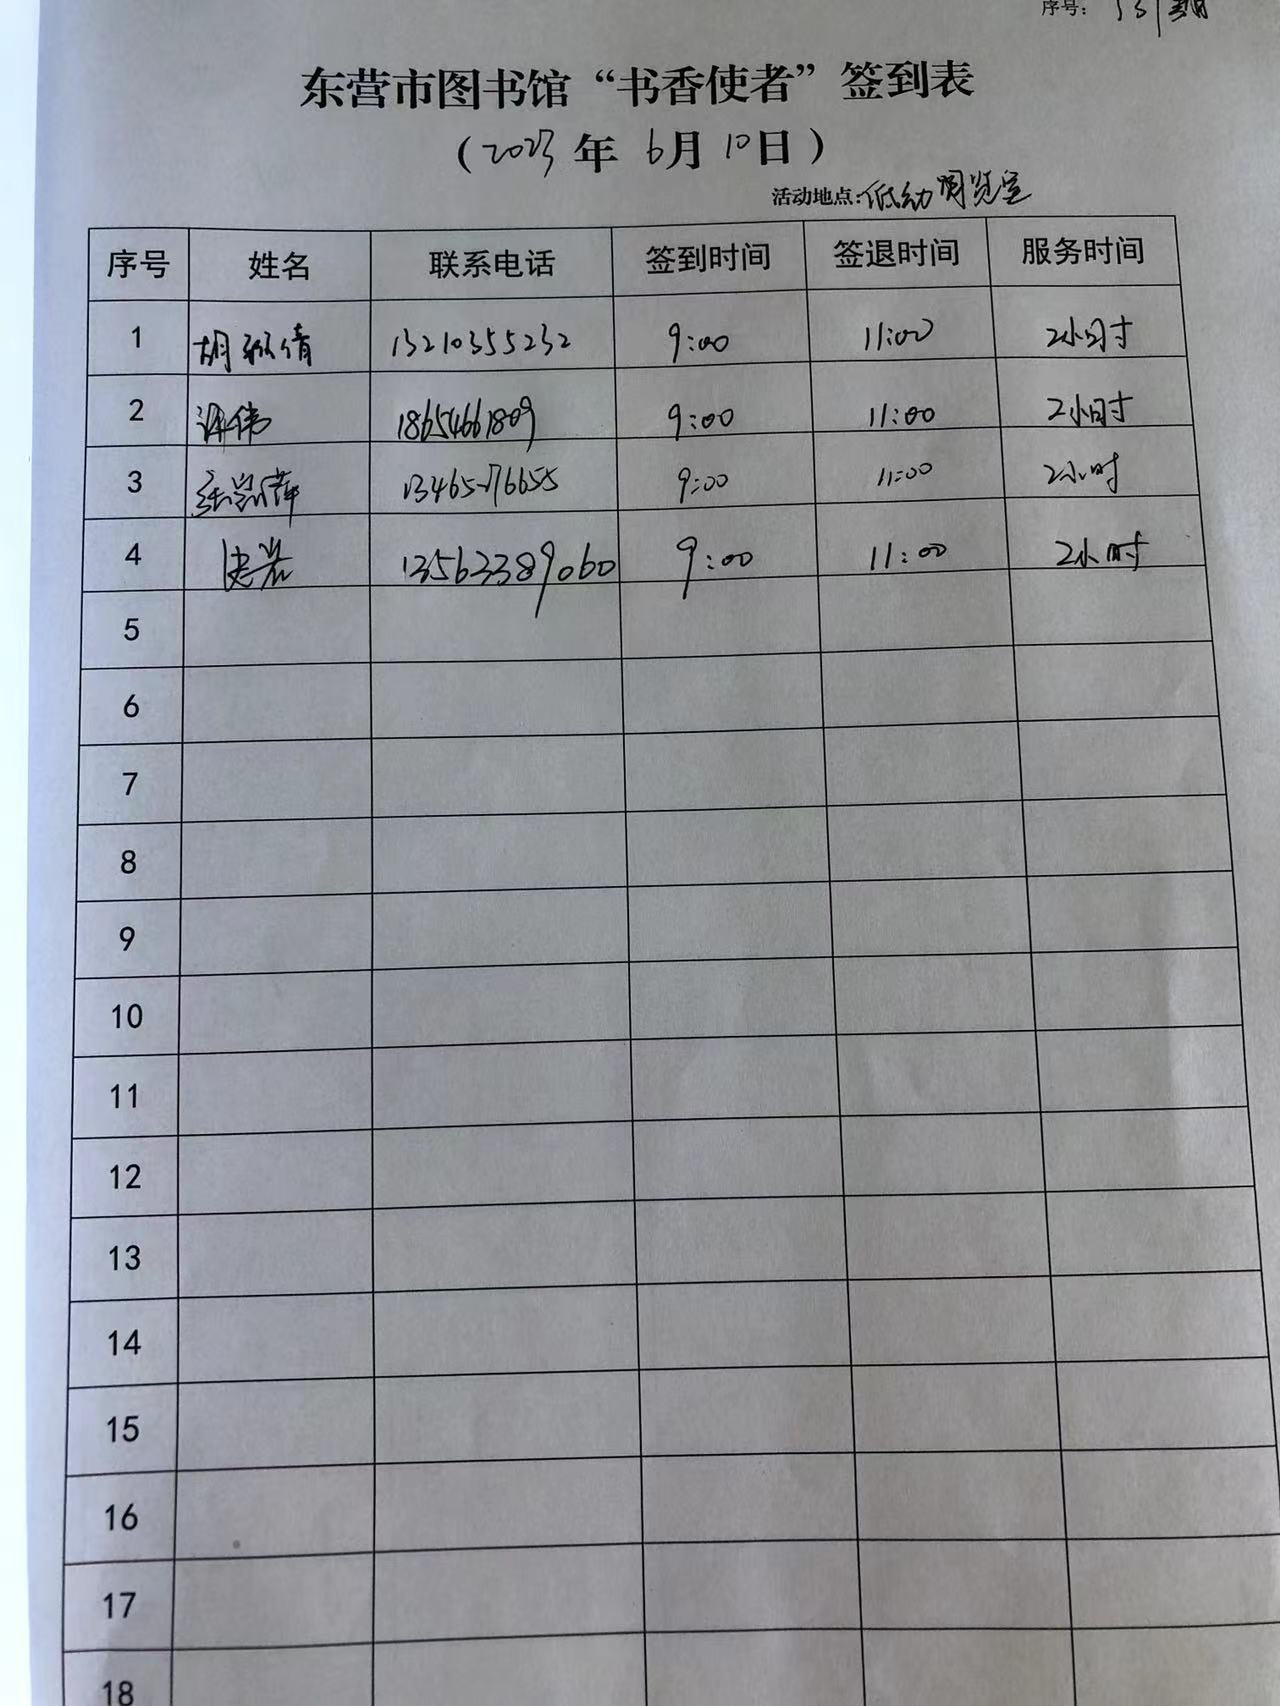 序号：
东营市图书馆“书香使者”签到表
（2023年 6月 10日）
活动地点:低幼阅览室
序号 姓名 联系电话 签到时间 签退时间 服务时间
1 胡 倩 13210355232 9:00 11:00 2小时
2 伟 18654661809 9:00 11:00 2小时
3 13465276655 9:00 11:00 2小时
4 13563389060 9:00 11:00 2小时
5
6
7
8
9
10
11
12
13
14
15
16
17
18